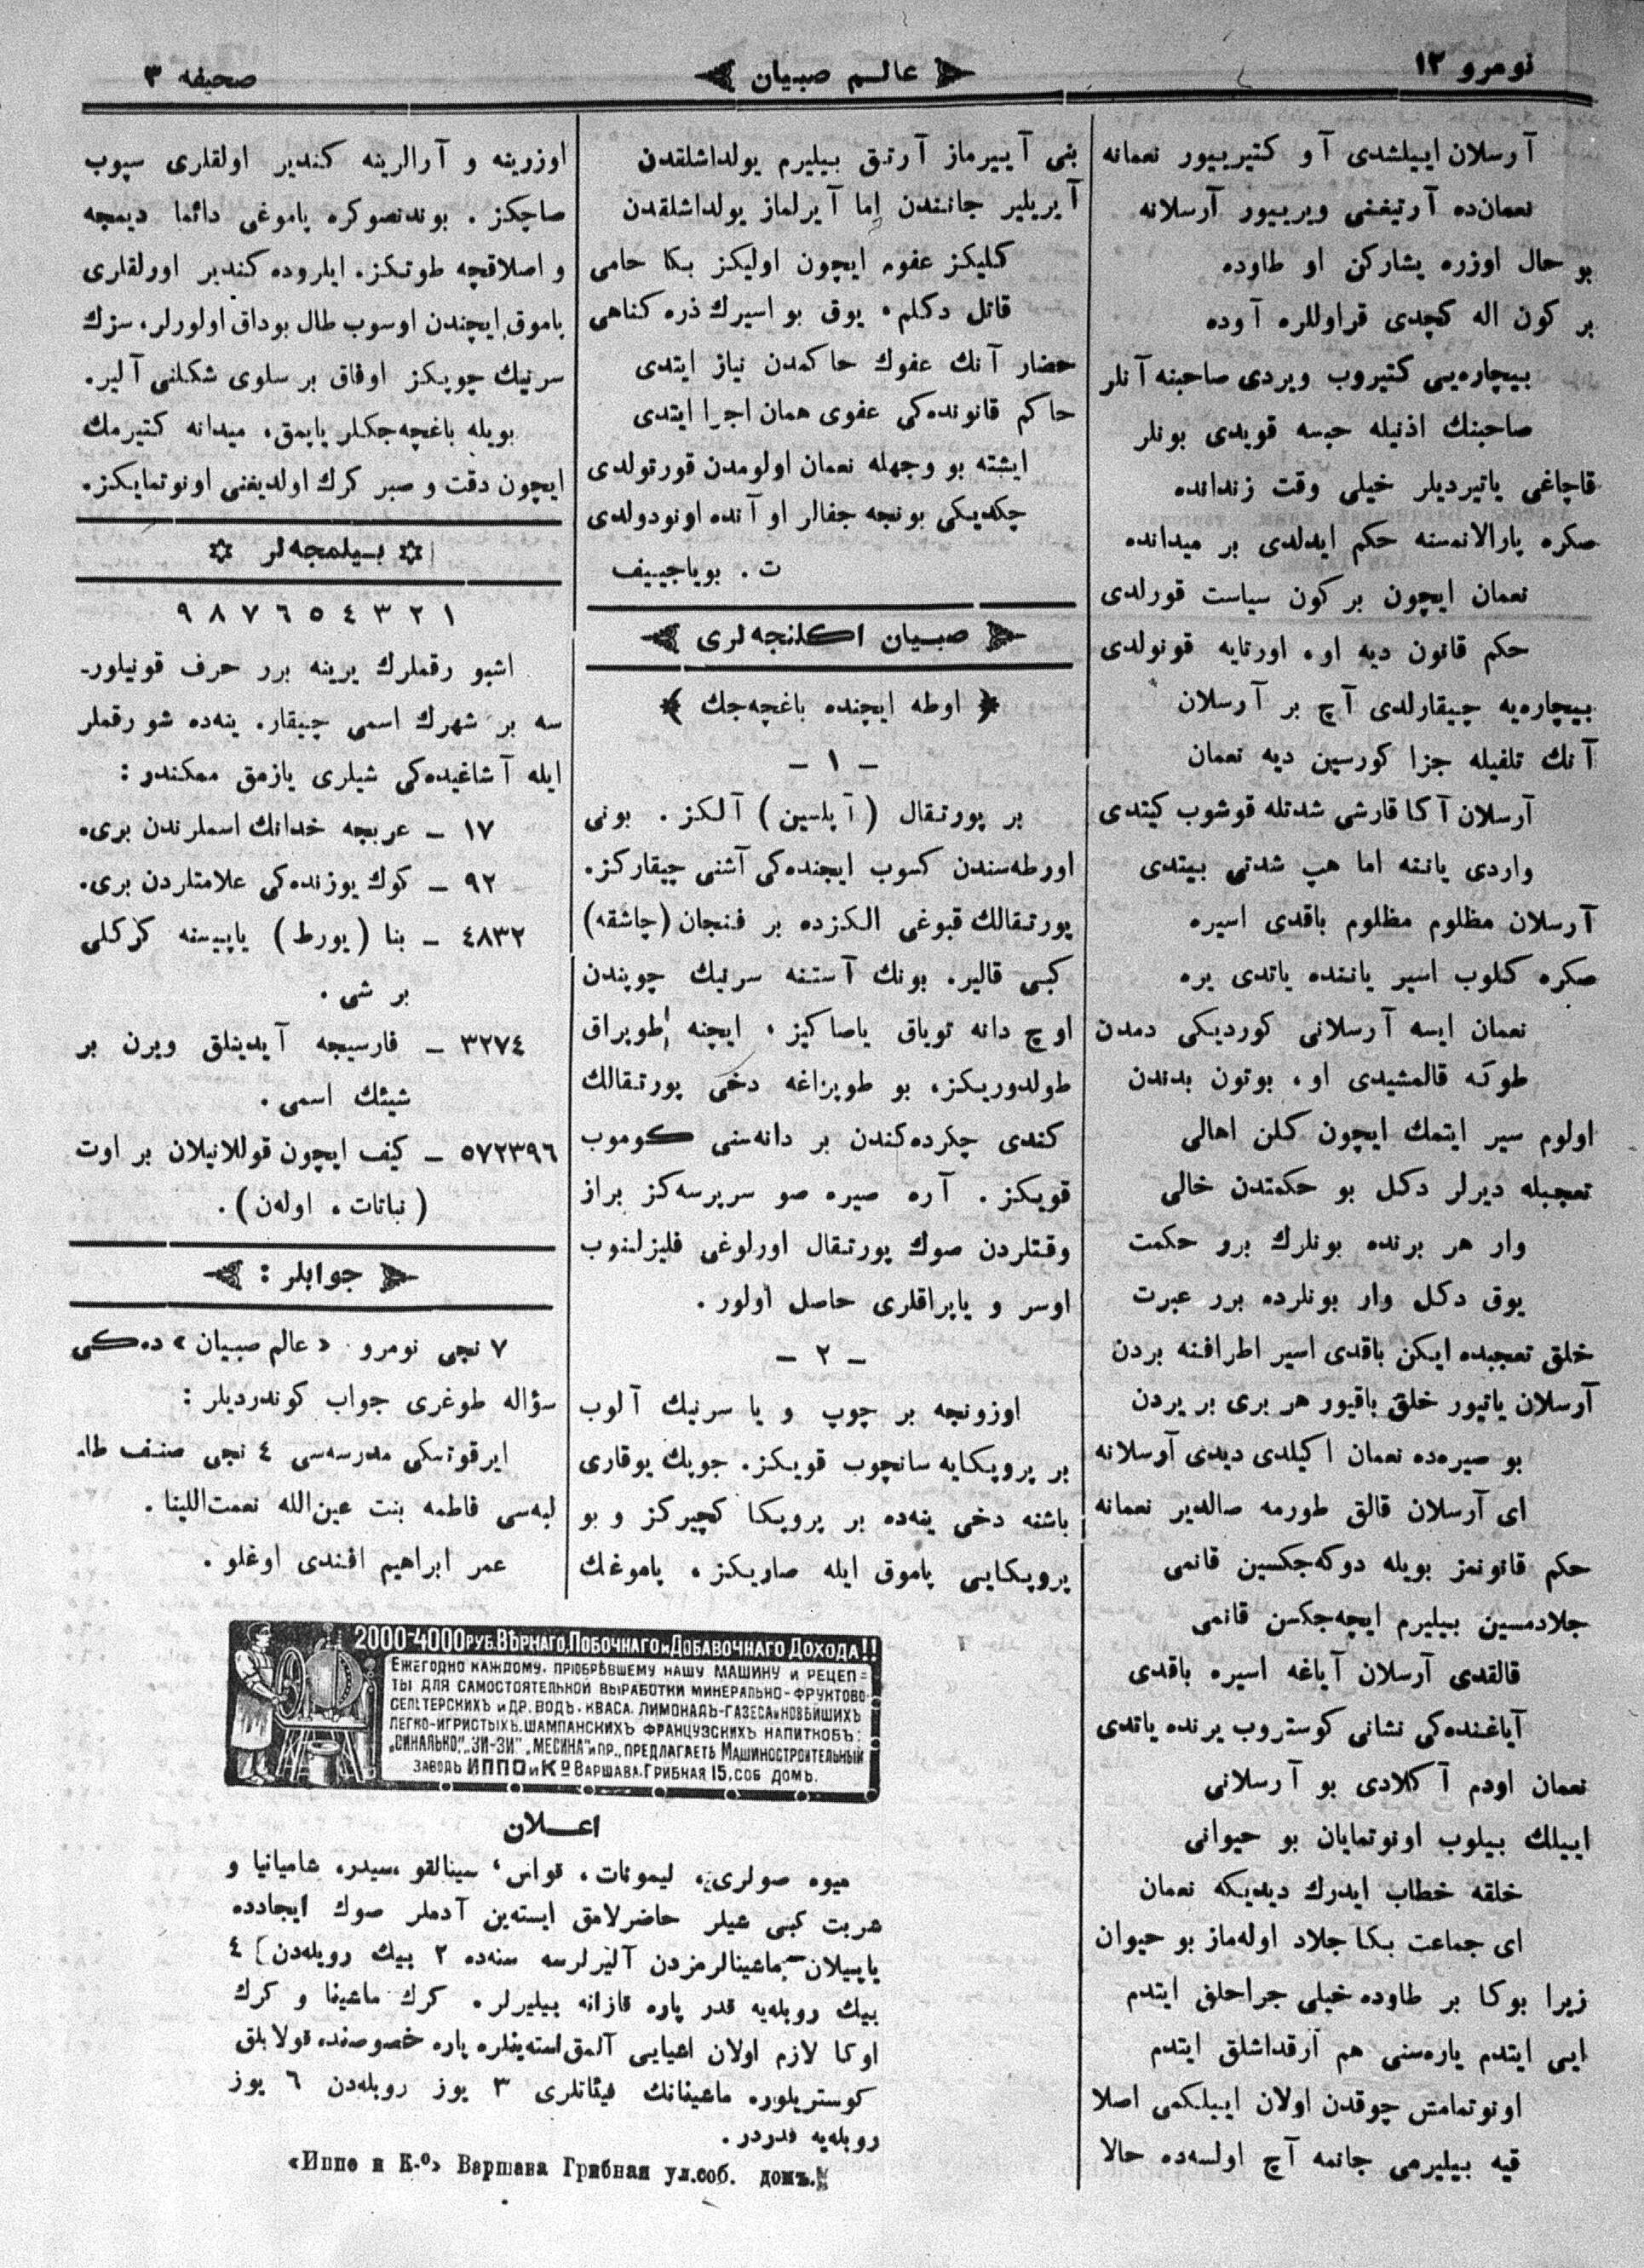 نومرو ١٢
عالم صبيان
صحيفه ٣
آرسلان اييلشدى آو كتيرييور نعمانه
نعمان‌ده آرتيغنى ويرييور آرسلانه
بو حال اوزره يشاركن او طاوده
بر كون اله كچدى قراوللره آوده
بيچاره‌يى كتيروب ويردى صاحبنه آنلر
صاحبنك اذنيله حبسه قويدى بونلر
قاچاغى ياتيرديلر خيلى وقت زندانده
صكره پارالانمسنه حكم ايدلدى بر ميدانده
نعمان ايچون بر كون سياست قورلدى
حكم قانون ديه او، اورتايه قونولدى
بيچاره‌يه چيقارلدى آچ بر آرسلان
آنك تلفيله جزا كورسين ديه نعمان
آرسلان آكا قارشى شدتله قوشوب كيتدى
واردى يانىنه اما هپ شدتى بيتدى
آرسلان مظلوم مظلوم باقدى اسيره
صكره كلوب اسير ياننده ياتدى يره
نعمان ايسه آرسلانى كورديكى دمدن
طوكه قالمشيدى او، بوتون بدندن
اولوم سير ايتمك ايچون كلن اهالى
تعجبله ديرلر دكل بو حكمتدن خالى
وار هر برنده بونلرك برر حكمت
يوق دكل وار بونلرده برر عبرت
خلق تعجبده ايكن باقدى اسير اطرافنه بردن
آرسلان ياتيور خلق باقيور هر برى بر يردن
بو صيره‌ده نعمان اكيلدى ديدى آرسلانه
اى آرسلان قالق طورمه صالدير نعمانه
حكم قانونمز بويله دوكه‌جكسين قانمى
جلادمسين بيليرم ايچه‌جكسن قانمى
قالقدى آرسلان آياغه اسيره باقدى
آياغنده‌كى نشانى كوستروب يرنده ياتدى
نعمان اودم آكلادى بو آرسلانى
اييلك بيلوب اونوتمايان بو حيوانى
خلقه خطاب ايدرك ديديكه نعمان
اى جماعت بكا جلاد اوله‌ماز بو حيوان
زيرا بوكا بر طاوده خيلى جراحلق ايتدم
ايى ايتدم ياره‌سنى هم آرقداشلق ايتدم
اونوتمامش چوقدن اولان اييلكمى اصلا
قيه بيليرمى جانمه آچ اولسه‌ده حالا
بنى آييرماز آرتق بيليرم يولداشلقدن
آيريلير جانندن اما آيرلماز يولداشلقدن
كليكز عفوم ايچون اوليكز بكا حامى
قاتل دكلم، يوق بو اسيرك ذره كناهى
حضار آنك عفوك حاكمدن نياز ايتدى
حاكم قانونده‌كى عفوى همان اجرا ايتدى
ايشته بو وجهله نعمان اولومدن قورتولدى
چكديكى بونجه جفالر او آنده اونودولدى
ت. بوياجييف
صبيان اكلنجه‌لرى
اوطه ايچنده باغچه‌جك
— ١ —
بر پورتقال (آپلسين) آلكز. بونى
اورطه‌سندن كسوب ايچنده‌كى آشنى چيقاركز.
پورتقالك قبوغى الكزده بر فنجان (چاشقه)
كبى قالير. بونك آستنه سرنيك چوپندن
اوچ دانه توياق ياصاكيز، ايچنه طوپراق
طولدوريكز، بو طوپراغه دخى پورتقالك
كندى چكرده‌كندن بر دانه‌سنى كوموب
قويكز. آره صيره صو سرپرسه‌كز براز
وقتلردن صوك پورتقال اورلوغى فليزلنوب
اوسر و ياپراقلرى حاصل اولور.
— ٢ —
اوزونجه بر چوپ و يا سرنيك آلوب
بر پروبكايه سانچوب قويكز. چوپك يوقارى
باشنه دخى ينه‌ده بر پروبكا كچيركز و بو
پروبكايى پاموق ايله صاريكز، پاموغك
اوزرينه و آرالرينه كندير اولقلرى سپوب
صاچكز. بوندنصوكره پاموغى دائما ديمجه
و اصلاقچه طوتكز. ايلروده كندير اورلقلرى
پاموق ايچندن اوسوب طال بوداق اولورلر، سزك
سرنيك چوپكز اوفاق بر سلوى شكلنى آلير.
بويله باغچه‌جكلر ياپمق، ميدانه كتيرمك
ايچون دقت و صبر كرك اولديغنى اونوتمايكز.
بيلمجه‌لر
١ ٢ ٣ ٤ ٥ ٦ ٧ ٨ ٩
اشبو رقملرك يرينه برر حرف قونيلور-
سه بر شهرك اسمى چيقار. ينه‌ده شو رقملر
ايله آشاغيده‌كى شيلرى يازمق ممكندر:
١٧ — عربجه خدانك اسملرندن برى.
٩٢ — كوك يوزنده‌كى علامتلردن برى.
٤٨٣٢ — بنا (يورط) ياپيسنه كركلى
بر شى.
٣٢٧٤ — فارسيجه آيدينلق ويرن بر
شيئك اسمى.
٥٧٢٣٩٦ — كيف ايچون قوللانيلان بر اوت
(نباتات، اوله‌ن).
جوابلر:
٧ نجى نومرو «عالم صبيان» ده‌كى
سؤاله طوغرى جواب كوندرديلر:
ايرقوتسكى مدرسه‌سى ٤ نجى صنف طا-
لبه‌سى فاطمه بنت عين‌الله نعمت‌اللينا.
عمر ابراهيم افندى اوغلو.
2000-4000 РУБ. ВѢРНАГО, ПОБОЧНАГО и ДОБАВОЧНАГО ДОХОДА!!
ЕЖЕГОДНО КАЖДОМУ, ПРІОБРѢВШЕМУ НАШУ МАШИНУ И РЕЦЕП=
ТЫ ДЛЯ САМОСТОЯТЕЛЬНОЙ ВЫРАБОТКИ МИНЕРАЛЬНО-ФРУКТОВО-
СЕЛЬТЕРСКИХЪ И ДР. ВОДЪ, КВАСА, ЛИМОНАДЪ-ГАЗЕСА и НОВѢЙШИХЪ
ЛЕГКО-ИГРИСТЫХЪ, ШАМПАНСКИХЪ ФРАНЦУЗСКИХЪ НАПИТКОВЪ:
„СИНАЛЬКО", „ЗИ-ЗИ", „МЕСИНА" и ПР., ПРЕДЛАГАЕТЪ МАШИНОСТРОИТЕЛЬНЫЙ
ЗАВОДЪ ИППО и Кº ВАРШАВА, ГРИБНАЯ 15, СОБ ДОМЪ.
اعلان
ميوه صولرى، ليمونات، قواس، سينالقو، سيدر، شامپانيا و
شربت كبى شيلر حاضرلامق ايسته‌ين آدملر صوك ايجادده
ياپيلان ماشينالرمزدن آليرلرسه سنه‌ده ٢ بيك روبله‌دن ٤
بيك روبله‌يه قدر پاره قازانه بيليرلر. كرك ماشينا و كرك
اوكا لازم اولان اشيايى آلمق استه‌ينلره پاره خصوصنده قولايلق
كوستريلوره ماشينانك فيئاتلرى ٣ يوز روبله‌دن ٦ يوز
روبله‌يه قدردر.
«Иппо и К-º» Варшава Грибная ул. соб. домъ.